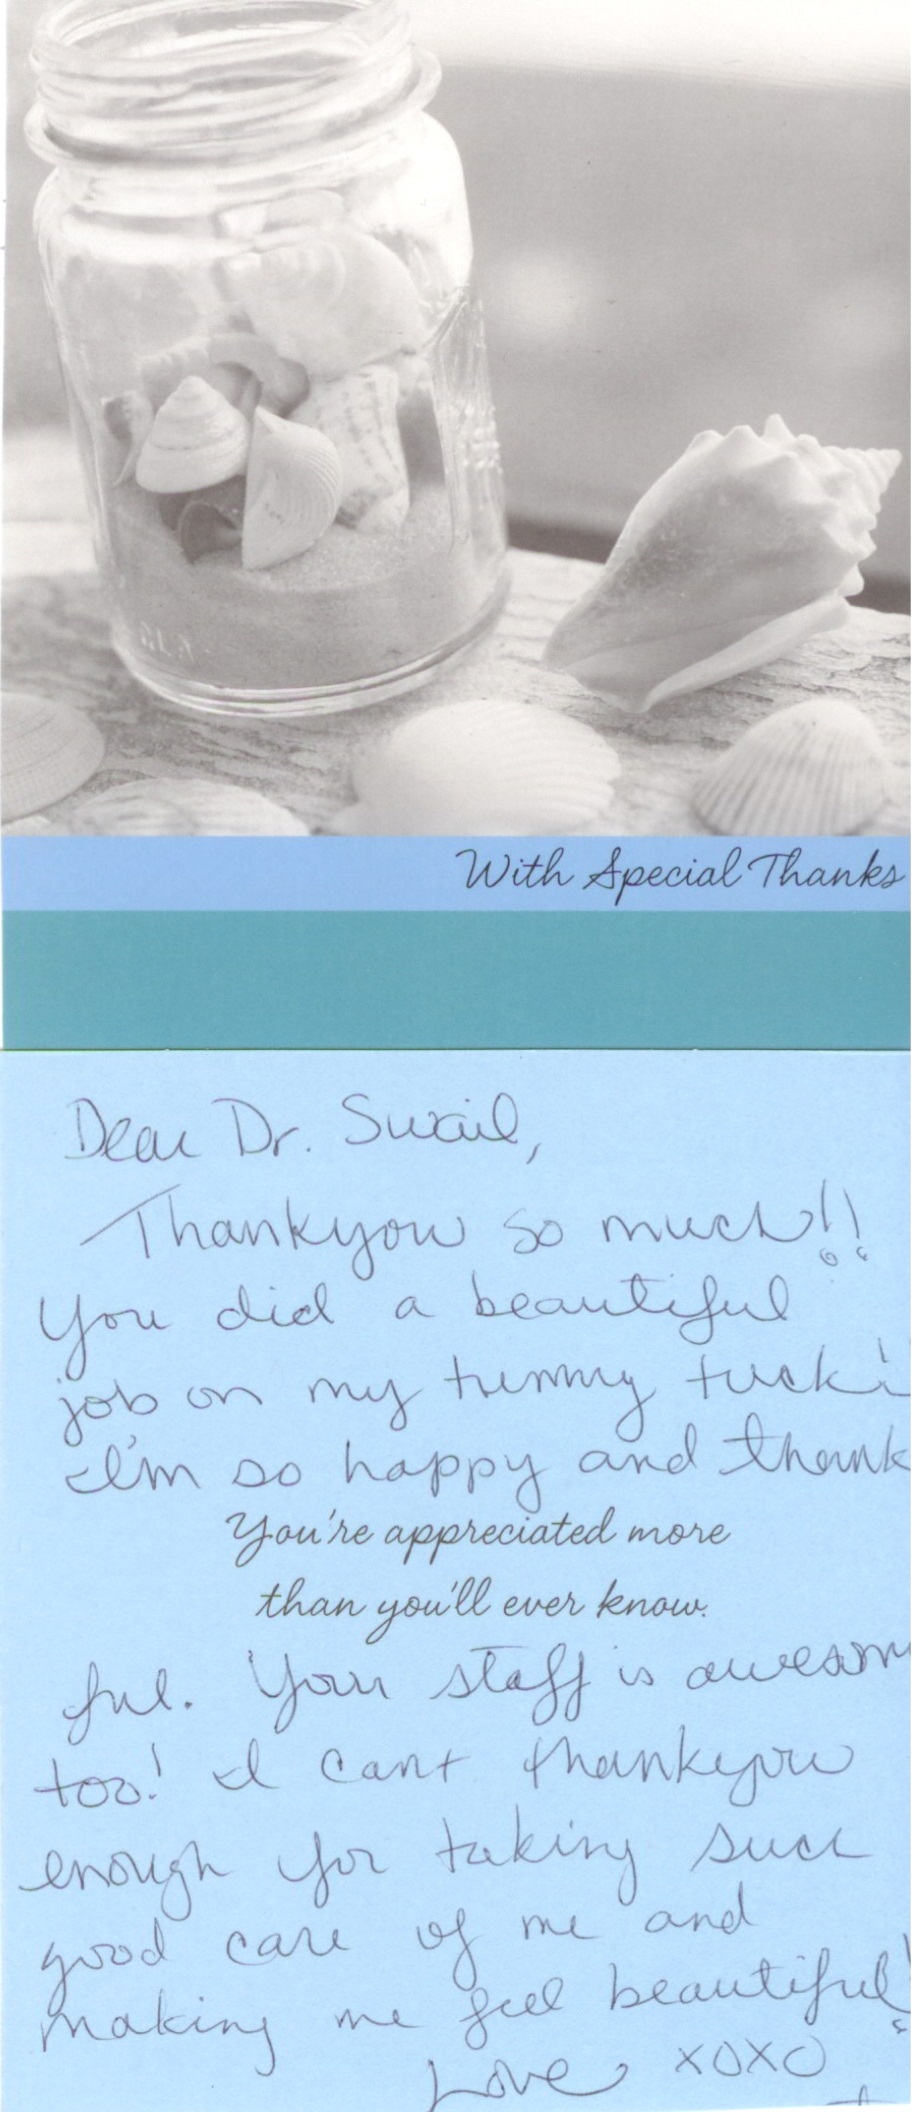 With Special Thanks
Dear Dr. Swail,
Thankyou so much!!
You did a beautiful
job on my tummy tuck!
I'm so happy and thank
You're appreciated more
than you'll ever know.
ful. Your staff is awesom
too! I cant thankyou
enough for taking such
good care of me and
making me feel beautiful!
Love XOXO